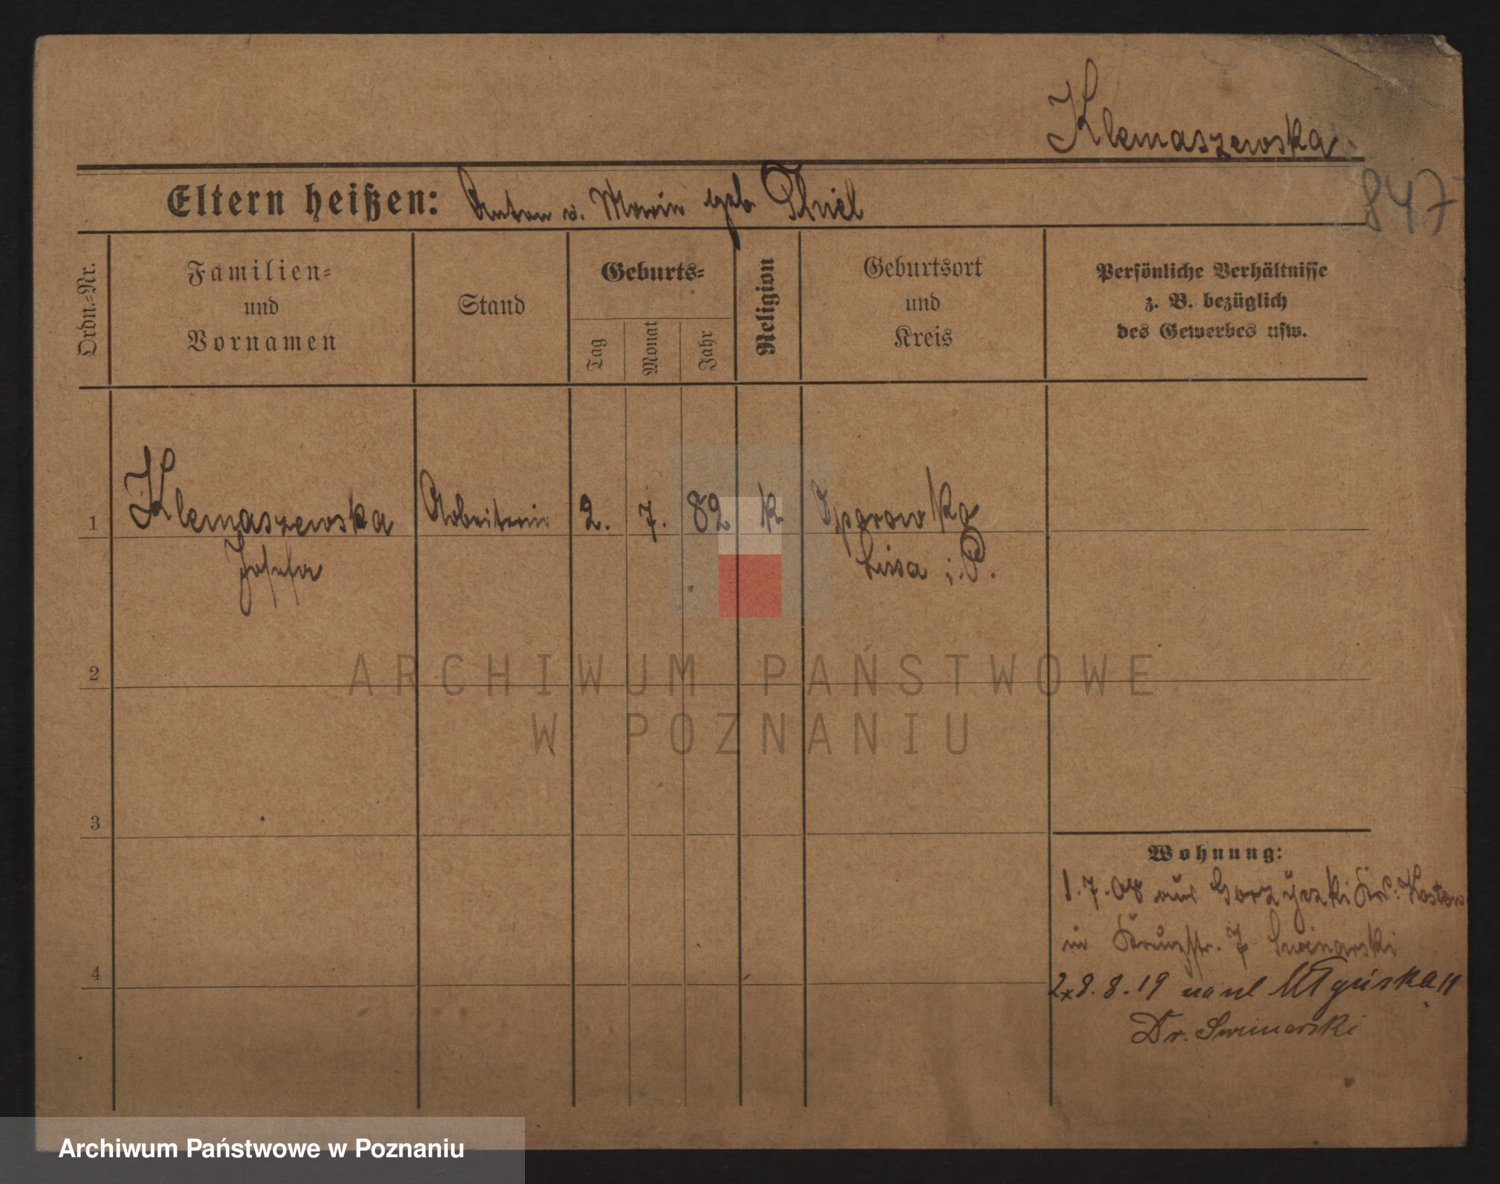 Klemaszewska
847
Eltern heißen: Anton u. Marie geb. Thiel
Ordn.-Nr.
Familien-
und
Vornamen
Stand
Geburts-
Tag
Monat
Jahr
Religion
Geburtsort
und
Kreis
Persönliche Verhältnisse
z. B. bezüglich
des Gewerbes usw.
1 Klemaszewska Arbeiterin 2. 7. 82 k.
Josefa Lissa i. P.
2
3
4
Wohnung:
1.7.08 aus Kr: Kosten
in Kreuzstr. 7 Swinarski
8.8.19 nach
Dr. Swinarski
ARCHIWUM PAŃSTWOWE
W POZNANIU
Archiwum Państwowe w Poznaniu